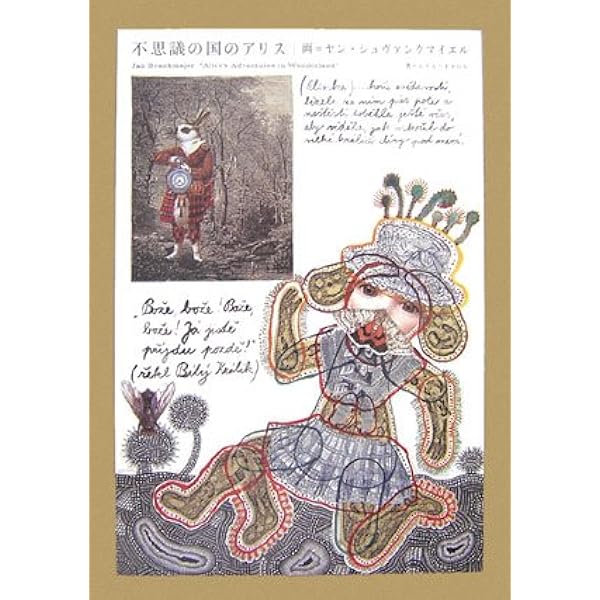 不思議の国のアリス｜画=ヤン・シュヴァンクマイエル
Jan Svankmajer "Alice's Adventures in Wonderland"
(Elvíra)...hoře zvědavostí,
běžela za ním přes pole a
naštěstí doběhla ještě včas,
aby viděla, jak vskočil do
velké králičí díry pod mezí.
„Bože, bože! Bože,
bože! Já jistě
přijdu pozdě!"
(řekl Bílý Králík)